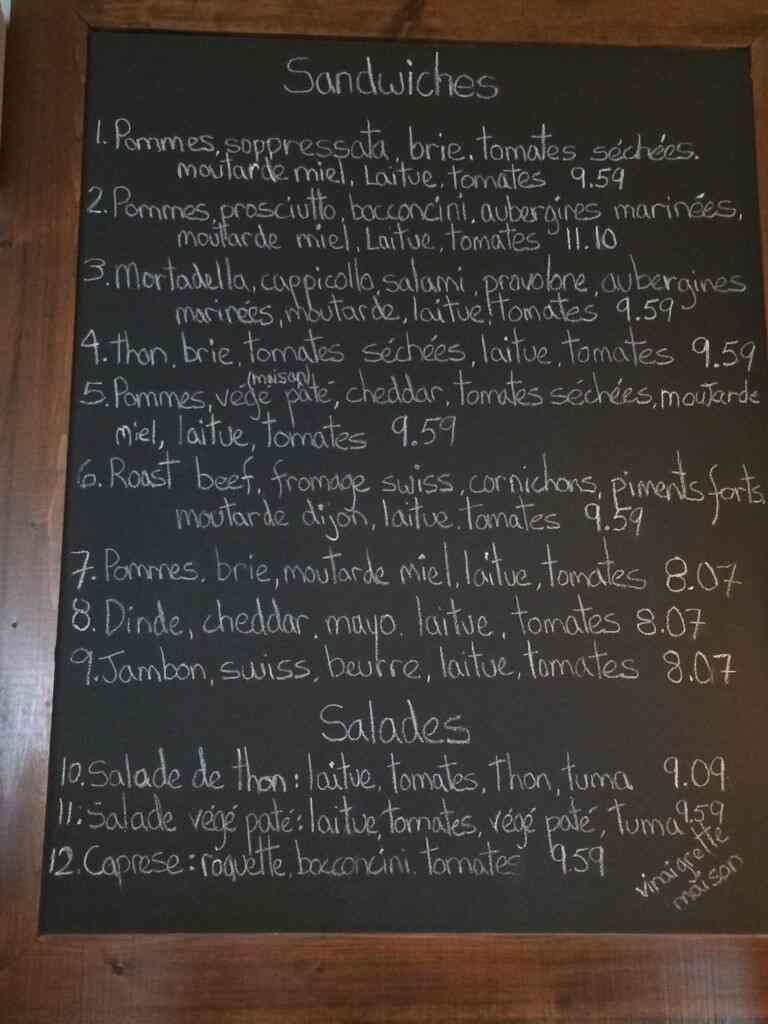 Sandwiches
1. Pommes, soppressata, brie, tomates séchées.
moutarde miel, Laitue, tomates 9.59
2. Pommes, prosciutto, bocconcini, aubergines marinées,
moutarde miel, Laitue, tomates 11.10
3. Mortadella, cappicollo, salami, provolone, aubergines
marinées, moutarde, laitue, tomates 9.59
4. Thon, brie, tomates séchées, laitue, tomates 9.59
(maison)
5. Pommes, végé paté, cheddar, tomates séchées, moutarde
miel, laitue, tomates 9.59
6. Roast beef, fromage swiss, cornichons, piments forts,
moutarde dijon, laitue, tomates 9.59
7. Pommes, brie, moutarde miel, laitue, tomates 8.07
8. Dinde, cheddar, mayo, laitue, tomates 8.07
9. Jambon, swiss, beurre, laitue, tomates 8.07
Salades
10. Salade de thon: laitue, tomates, Thon, tuma 9.09
11. Salade végé paté: laitue, tomates, végé paté, tuma 9.59
12. Caprese: roquette, bocconcini, tomates 9.59
vinaigrette
maison